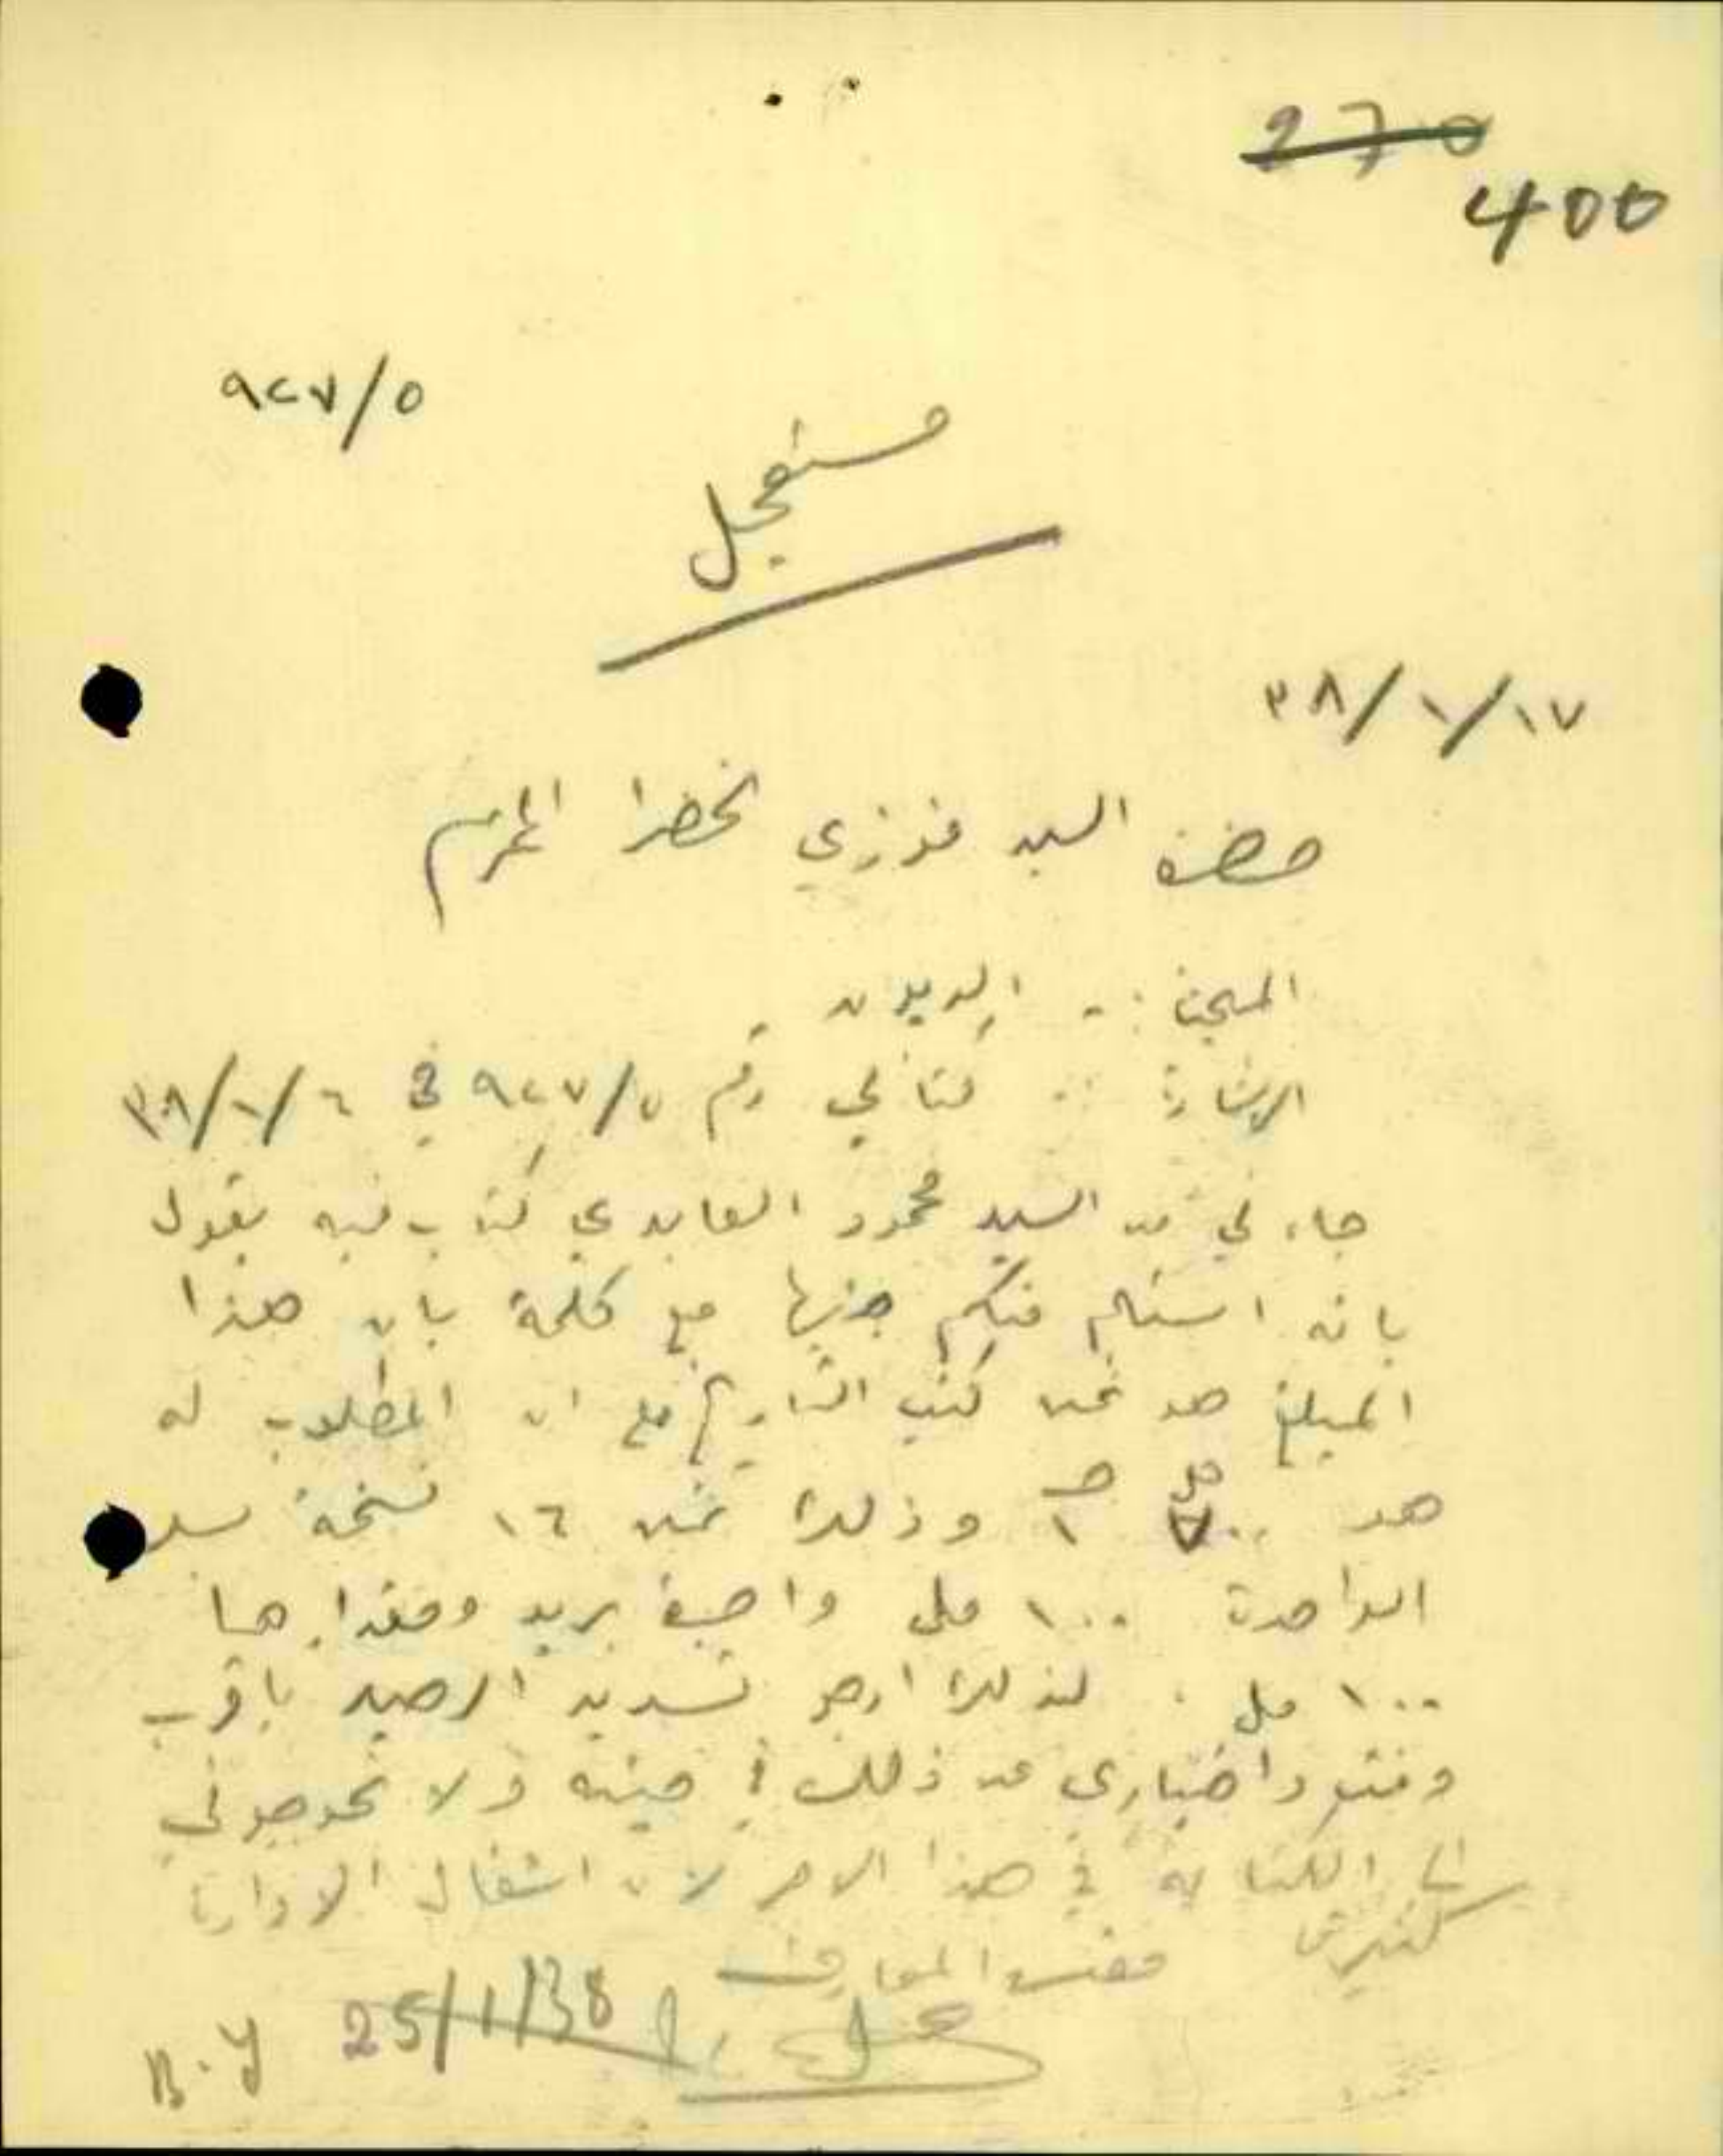 270
400
٩٢٧/٥
مستعجل
٣٨/١/١٧
حضرة السيد فوزي الخضرا المحترم
المبحث :- الديون
الإشارة :- كتابي رقم ٩٢٧/٥ في ٣٨/١/٦
جاءني من السيد محمود العابدي كتاب فيه يقول
بانه استلم منكم جنيها مع كلمة بان هذا
المبلغ هو ثمن كتب التاريخ مع ان المطلوب له
هو ٧٠٠ مل ١ ج وذلك ثمن ١٦ نسخة سعر
الواحدة ١٠٠ مل واجرة بريد ومقدارها
١٠٠ مل . لذلك ارجو تسديد الرصيد باقرب
وقت واخباري عن ذلك في حينه ولا تحوجوني
الى الكتابة في هذا الامر لان اشغال الادارة
كثيرة
مفتش المعارف
B.Y 25/1/38